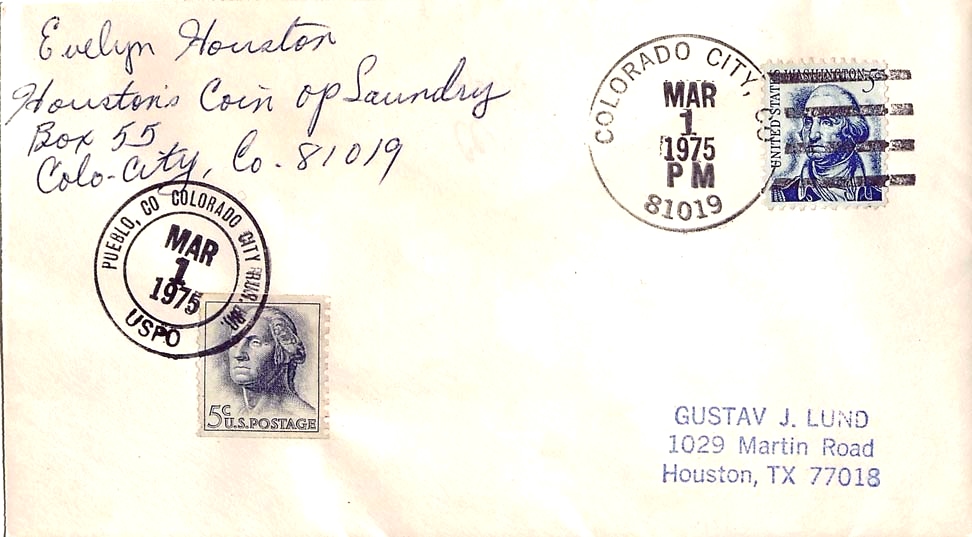 Evelyn Houston
Houston's Coin op Laundry
Box 55
Colo-City, Co. 81019
COLORADO CITY, CO
MAR
1
1975
PM
81019
UNITED STATES
WASHINGTON 5c
PUEBLO, CO COLORADO CITY RUR. BR.
MAR
1
1975
USPO
5c U.S. POSTAGE
GUSTAV J. LUND
1029 Martin Road
Houston, TX 77018